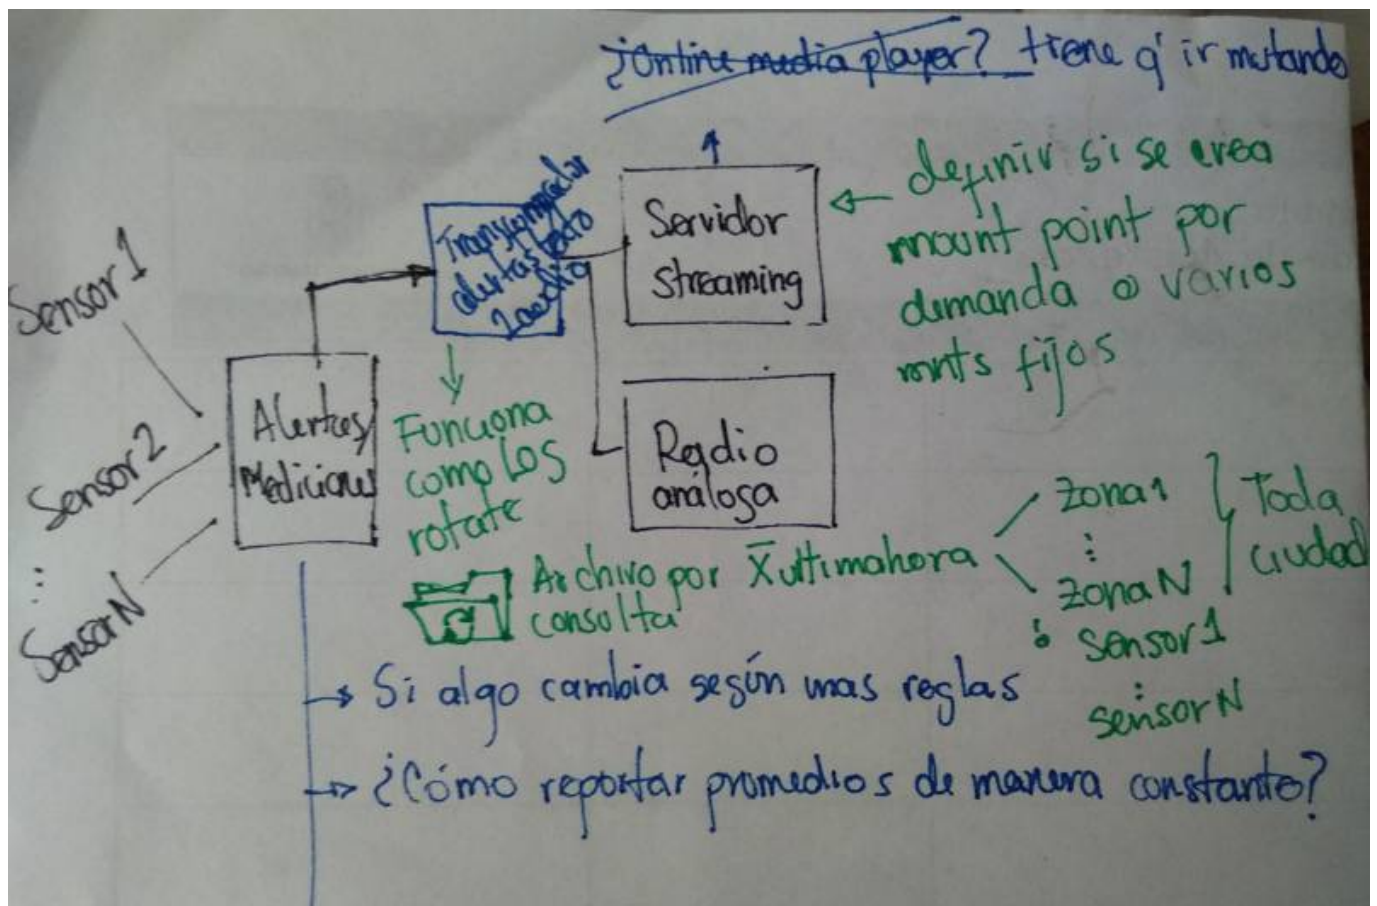 ¿Online media player? tiene q' ir mutando
Sensor 1
Sensor 2
Sensor N
Alertas/
Mediciones
Transformador
alertas texto
2audio
Servidor
streaming
definir si se crea
mount point por
demanda o varios
mnts fijos
Radio
análoga
Funciona
como LOS
rotate
Archivo por
consulta
X̄ ultimahora
zona 1
⋮
zona N
Toda
ciudad
sensor 1
⋮
sensor N
→ Si algo cambia según unas reglas
→ ¿Cómo reportar promedios de manera constante?